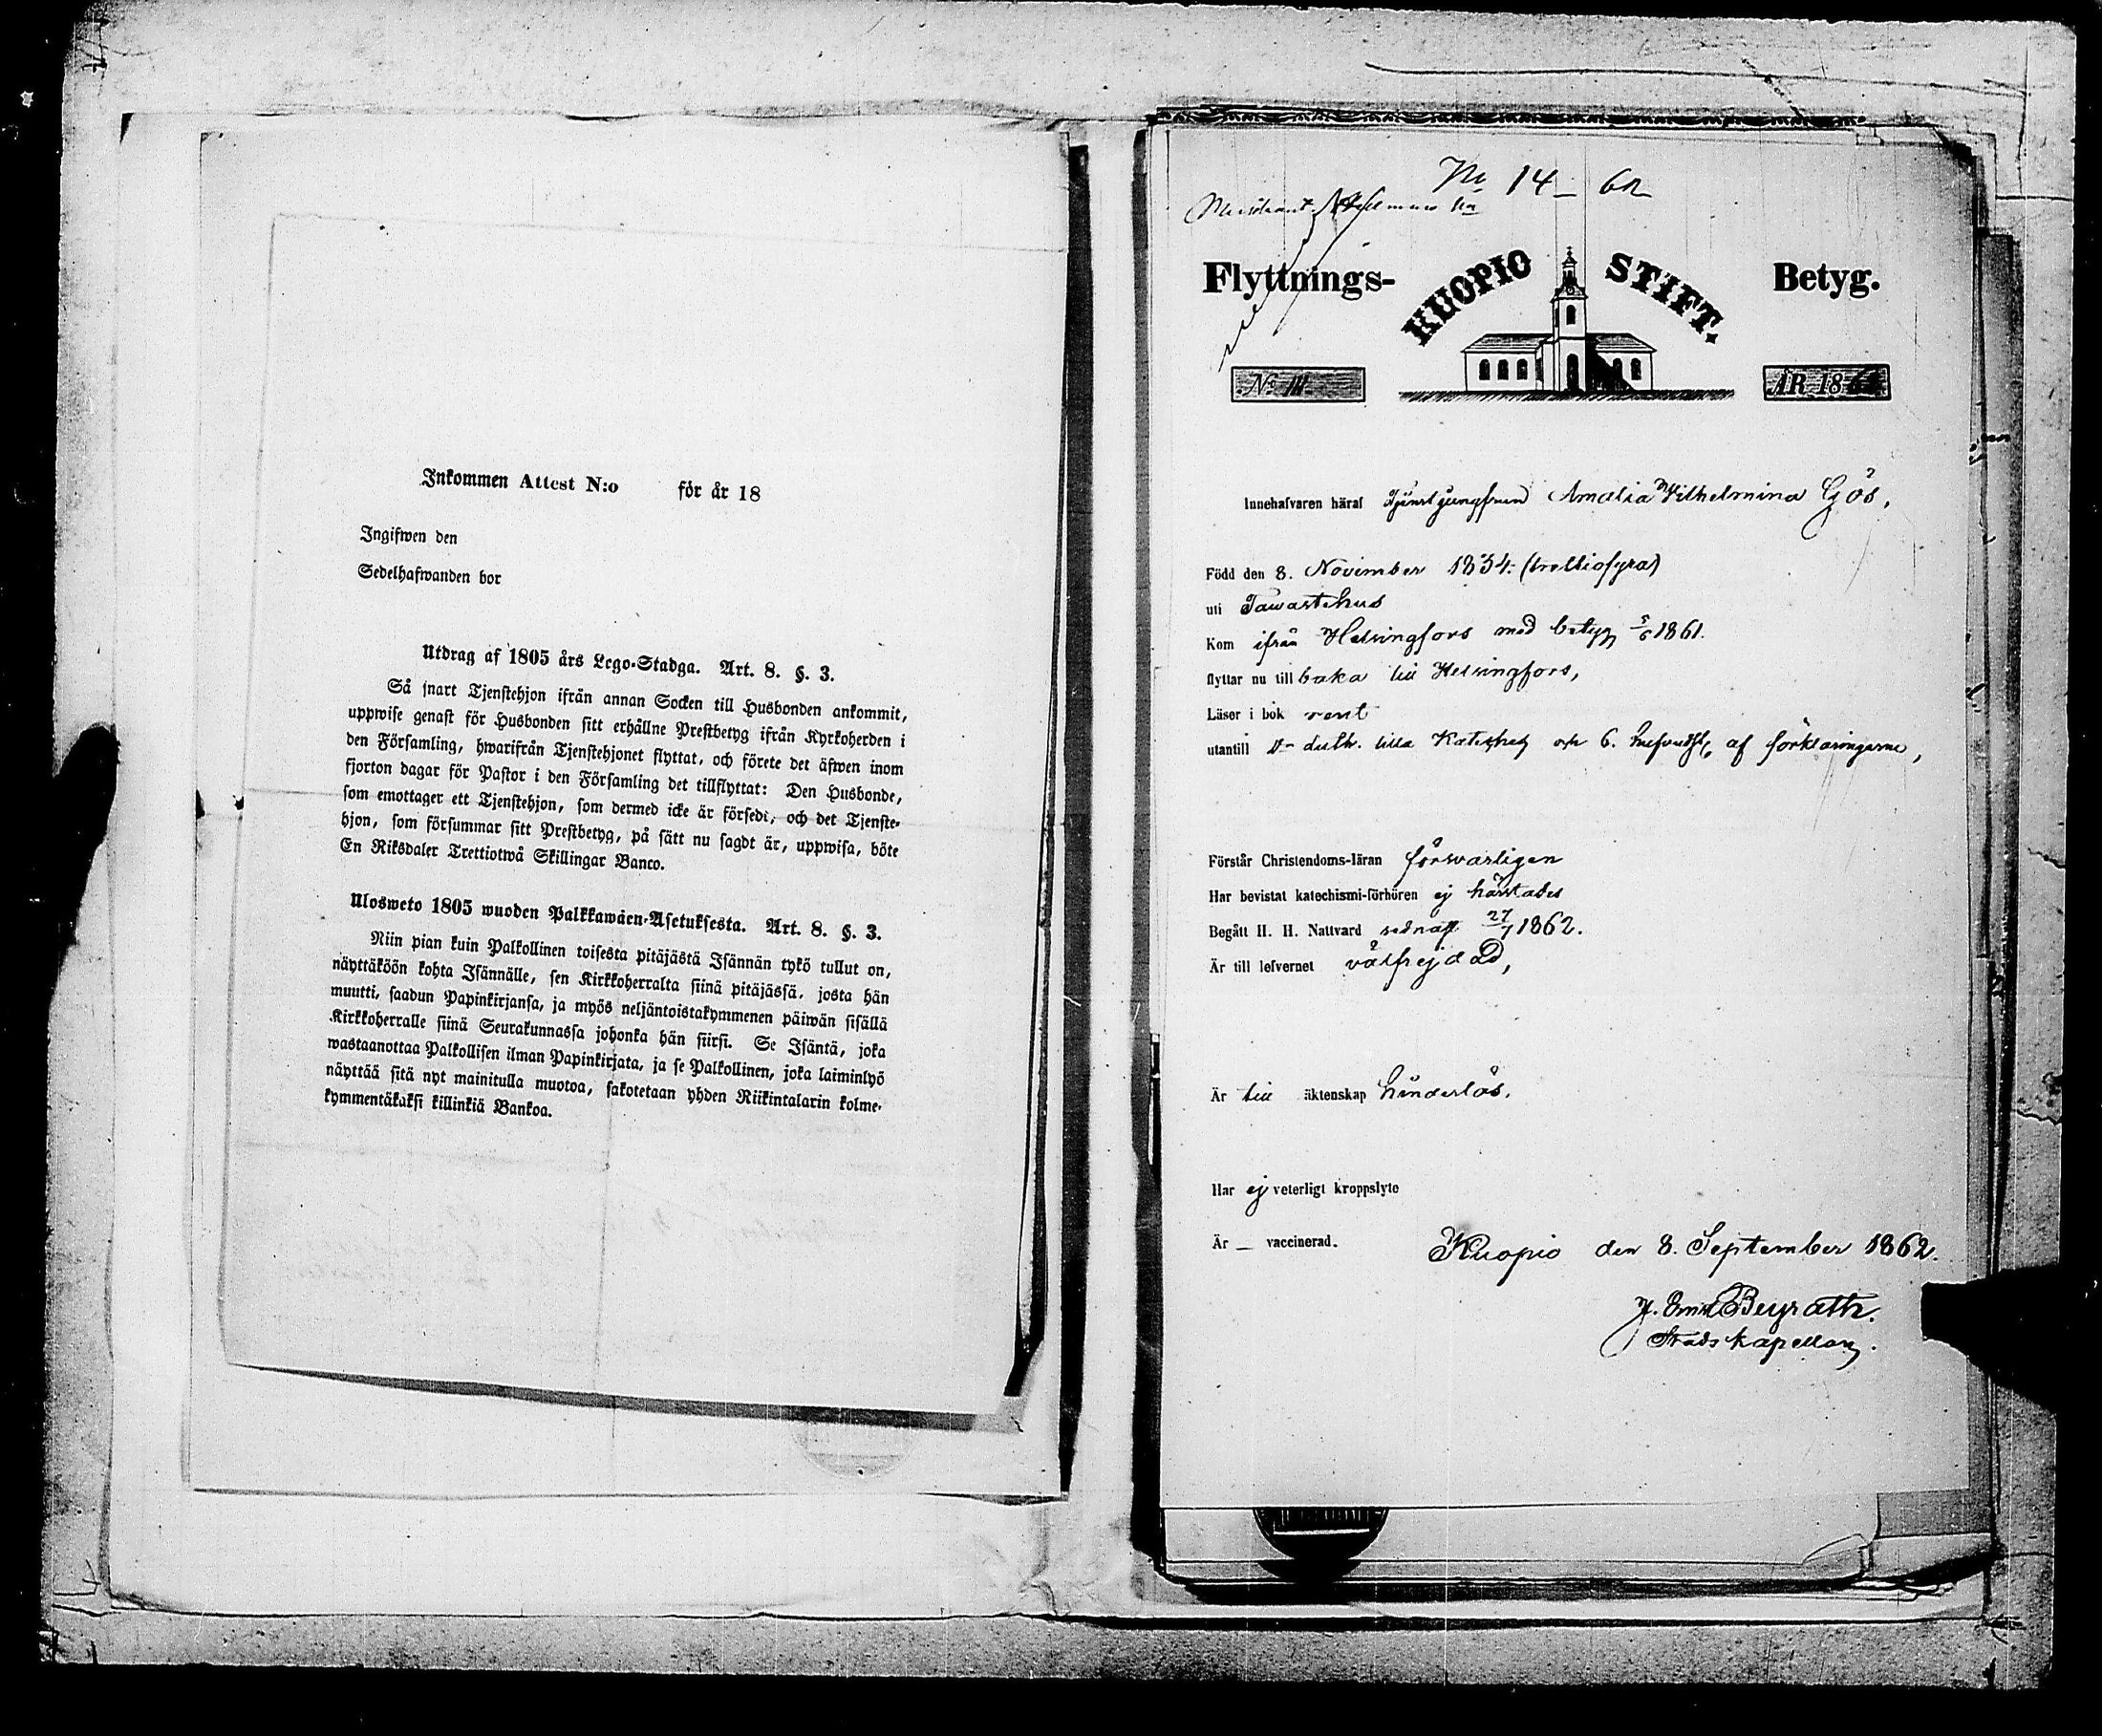 Inkommen Attest N:o för år 18
Ingifwen den
Sedelhafwanden bor
Utdrag af 1805 års Lego-Stadga. Art. 8. §. 3.
Så snart Tjenstehjon ifrån annan Socken till Husbonden ankommit,
uppwise genast för Husbonden sitt erhållne Prestbetyg ifrån Kyrkoherden i
den Församling, hwarifrån Tjenstehjonet flyttat, och förete det äfwen inom
fjorton dagar för Pastor i den Församling det tillflyttat: Den Husbonde,
som emottager ett Tjenstehjon, som dermed icke är försedt, och det Tjenste-
hjon, som försummar sitt Prestbetyg, på sätt nu sagdt är, uppwisa, böte
En Riksdaler Trettiotwå Skillingar Banco.
Ulosweto 1805 wuoden Palkkawäen-Asetuksesta. Art. 8. §. 3.
Niin pian kuin Palkollinen toisesta pitäjästä Isännän tykö tullut on,
näyttäköön kohta Isännälle, sen Kirkkoherralta siinä pitäjässä, josta hän
muutti, saadun Papinkirjansa, ja myös neljäntoistakymmenen päiwän sisällä
Kirkkoherralle siinä Seurakunnassa johonka hän siirsi. Se Isäntä, joka
wastaanottaa Palkollisen ilman Papinkirjata, ja se Palkollinen, joka laiminlyö
näyttää sitä nyt mainitulla muotoa, sakotetaan yhden Riikintalarin kolme-
kymmentäkaksi killinkiä Bankoa.
No 14 - 62
Flyttnings- KUOPIO STIFT. Betyg.
No 14. ÅR 1862
Innehafvaren häraf Tjenstejungfrun Amalia Wilhelmina Gös,
Född den 8. November 1834. (trettiofyra)
uti Tawastehus
Kom ifrån Helsingfors med betyg 5/6 1861.
flyttar nu till baka till Helsingfors,
Läser i bok rent
utantill D:r Luth. lilla Kateches och 6. hufvudst. af förklaringarne,
Förstår Christendoms-läran förswarligen
Har bevistat katechismi-förhören ej härstädes
Begått H. H. Nattvard sednast 27/7 1862.
Är till lefvernet välfrejdad,
Är till äktenskap hinderlös.
Har ej veterligt kroppslyte
Är — vaccinerad.
Kuopio den 8. September 1862.
J. Emil Beyrath.
Stads kapellan.